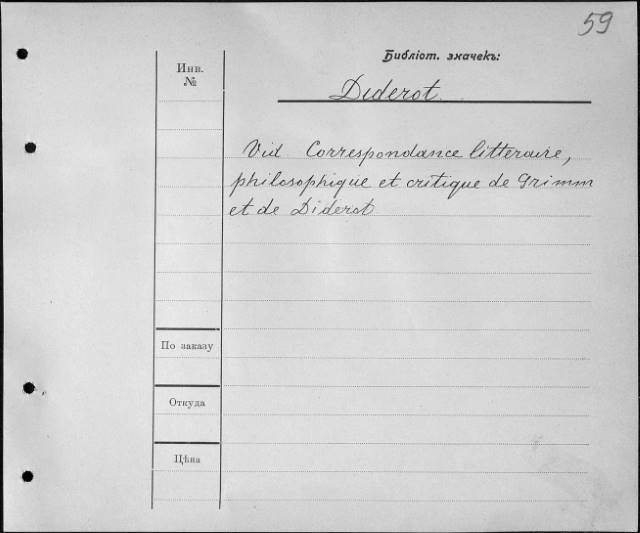 59
Библіот. значекъ:
Инв.
№
Diderot.
Vid. Correspondance litteraire,
philosophique et critique de Grimm
et de Diderot
По заказу
Откуда
Цѣна